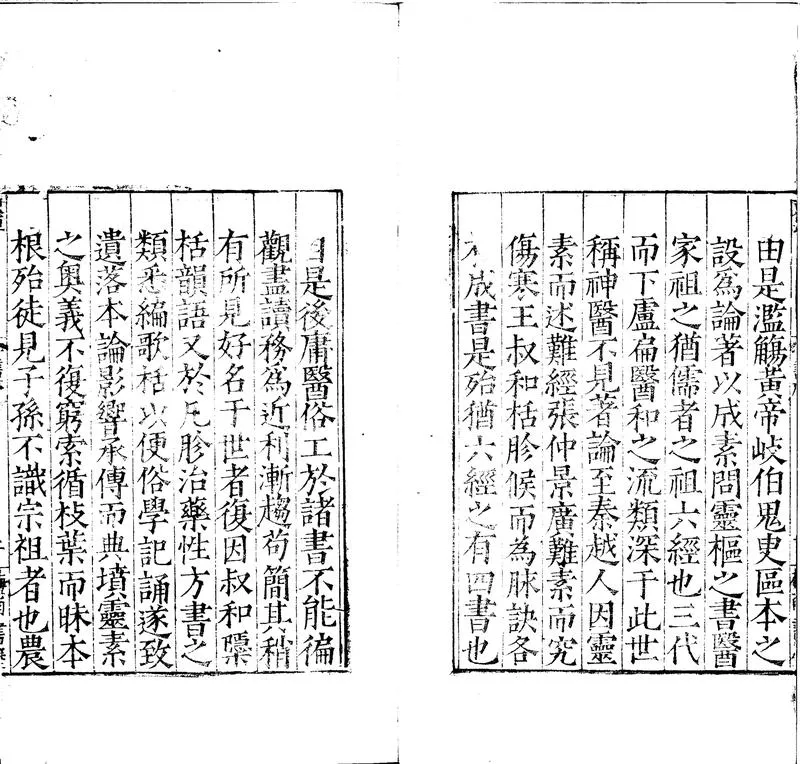 由是濫觴黃帝岐伯鬼臾區本之
設爲論著以成素問靈樞之書醫
家祖之猶儒者之祖六經也三代
而下盧扁醫和之流類深于此世
稱神醫不見著論至秦越人因靈
素而述難經張仲景廣難素而究
傷寒王叔和栝胗候而為脉訣各
成書是殆猶六經之有四書也
自是後庸醫俗工於諸書不能徧
觀盡讀務為近利漸趨苟簡其稍
有所見好名于世者復因叔和隱
栝韻語又於凡胗治藥性方書之
類悉編歌栝以便俗學記誦遂致
遺落本論影響承傳而典墳靈素
之奥義不復窮索循枝葉而昧本
根殆徒見子孫不識宗祖者也農